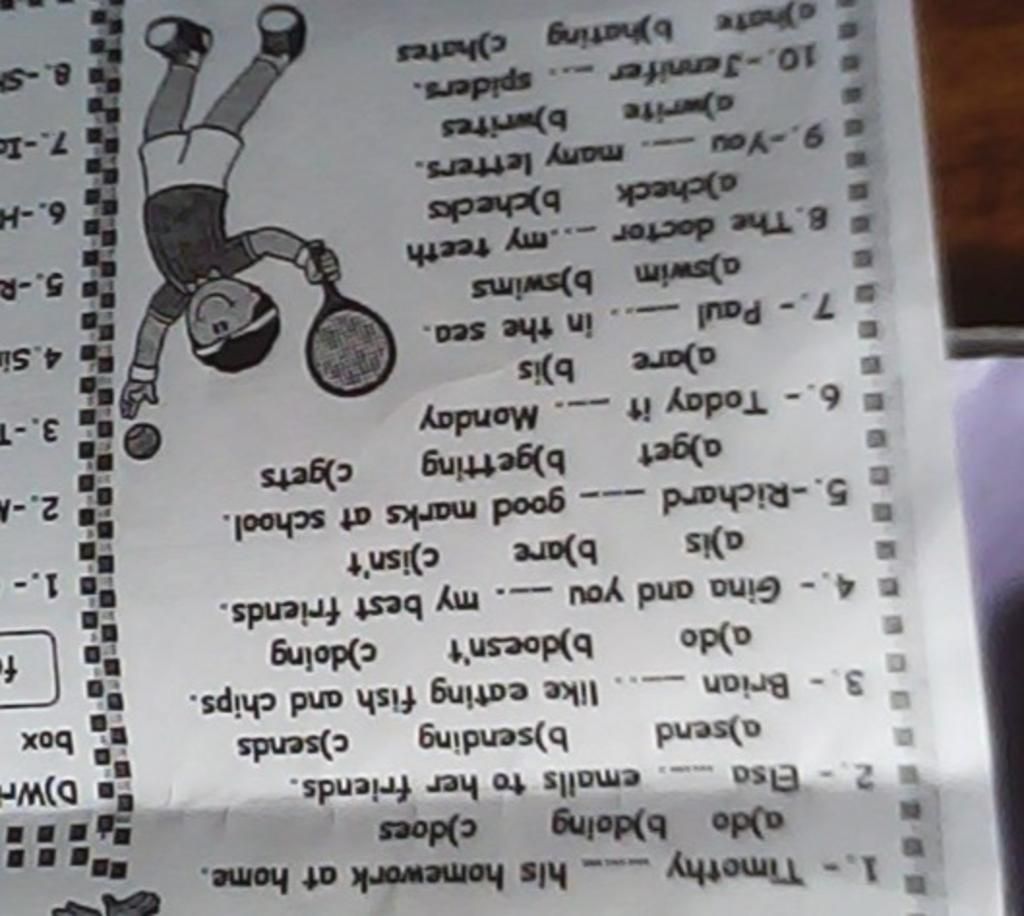 1.- Timothy ---- his homework at home.
a)do b)doing c)does
2.- Elsa ---- emails to her friends.
a)send b)sending c)sends
3.- Brian ---.. like eating fish and chips.
a)do b)doesn't c)doing
4.- Gina and you ---. my best friends.
a)is b)are c)isn't
5.-Richard --- good marks at school.
a)get b)getting c)gets
6.- Today it ---. Monday
a)are b)is
7.- Paul ---.. in the sea.
a)swim b)swims
8.The doctor -...my teeth
a)check b)checks
9.-You ---. many letters.
a)write b)writes
10.-Jennifer -... spiders.
a)hate b)hating c)hates
box
1.-
2.-
3.-
4.
5.-
6.-
7.-
8.-